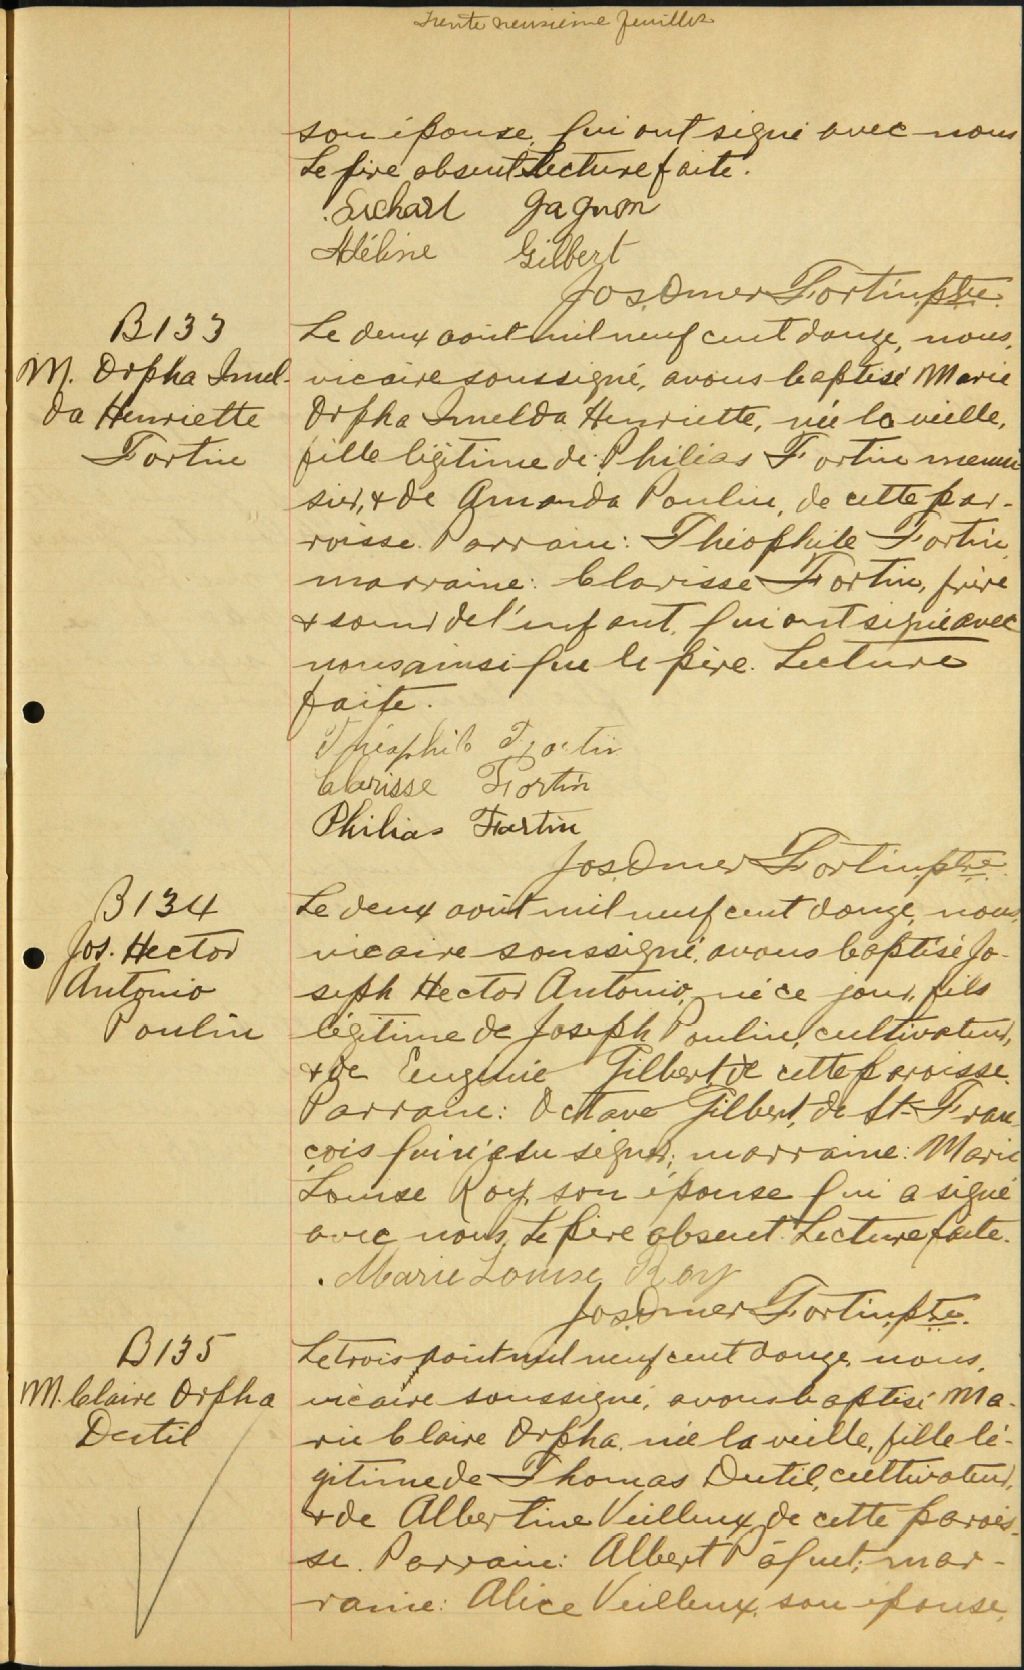 Trente neuvième feuillet
son épouse, qui ont signé avec nous
Le père absent Lecture faite.
Gagnon
Hélène Gilbert
Jos. Omer Fortin, ptre.
B133
M. Orpha Imel-
da Henriette
Fortin
Le deux août mil neuf cent douze, nous,
vicaire soussigné, avons baptisé Marie
Orpha Imelda Henriette, née la veille,
fille légitime de Philias Fortin menui
sier, & de Amanda Poulin, de cette par-
roisse. Parrain: Théophile Fortin,
marraine: Clarisse Fortin, frère
& soeur de l'enfant, qui ont signé avec
nous ainsi que le père. Lecture
faite.
Théophile Fortin
Clarisse Fortin
Philias Fortin
Jos. Omer Fortin, ptre.
B134
Jos. Hector
Antonio
Poulin
Le deux août mil neuf cent douze, nous,
vicaire soussigné, avons baptisé Jo-
seph Hector Antonio, né ce jour, fils
légitime de Joseph Poulin, cultivateur,
& de Eugénie Gilbert, de cette paroisse.
Parrain: Octave Gilbert, de St-Fran
çois qui n'a su signer; marraine: Marie
Louise Roy, son épouse qui a signé
avec nous. Le père absent. Lecture faite.
Marie Louise Roy
Jos. Omer Fortin, ptre.
B135
M. Claire Orpha
Dutil
Le trois août mil neuf cent douze, nous,
vicaire soussigné, avons baptisé Ma-
rie Claire Orpha, née la veille, fille lé-
gitime de Thomas Dutil, cultivateur,
& de Albertine Veilleux, de cette parois-
se. Parrain: Albert Pâquet; mar-
raine: Alice Veilleux, son épouse,